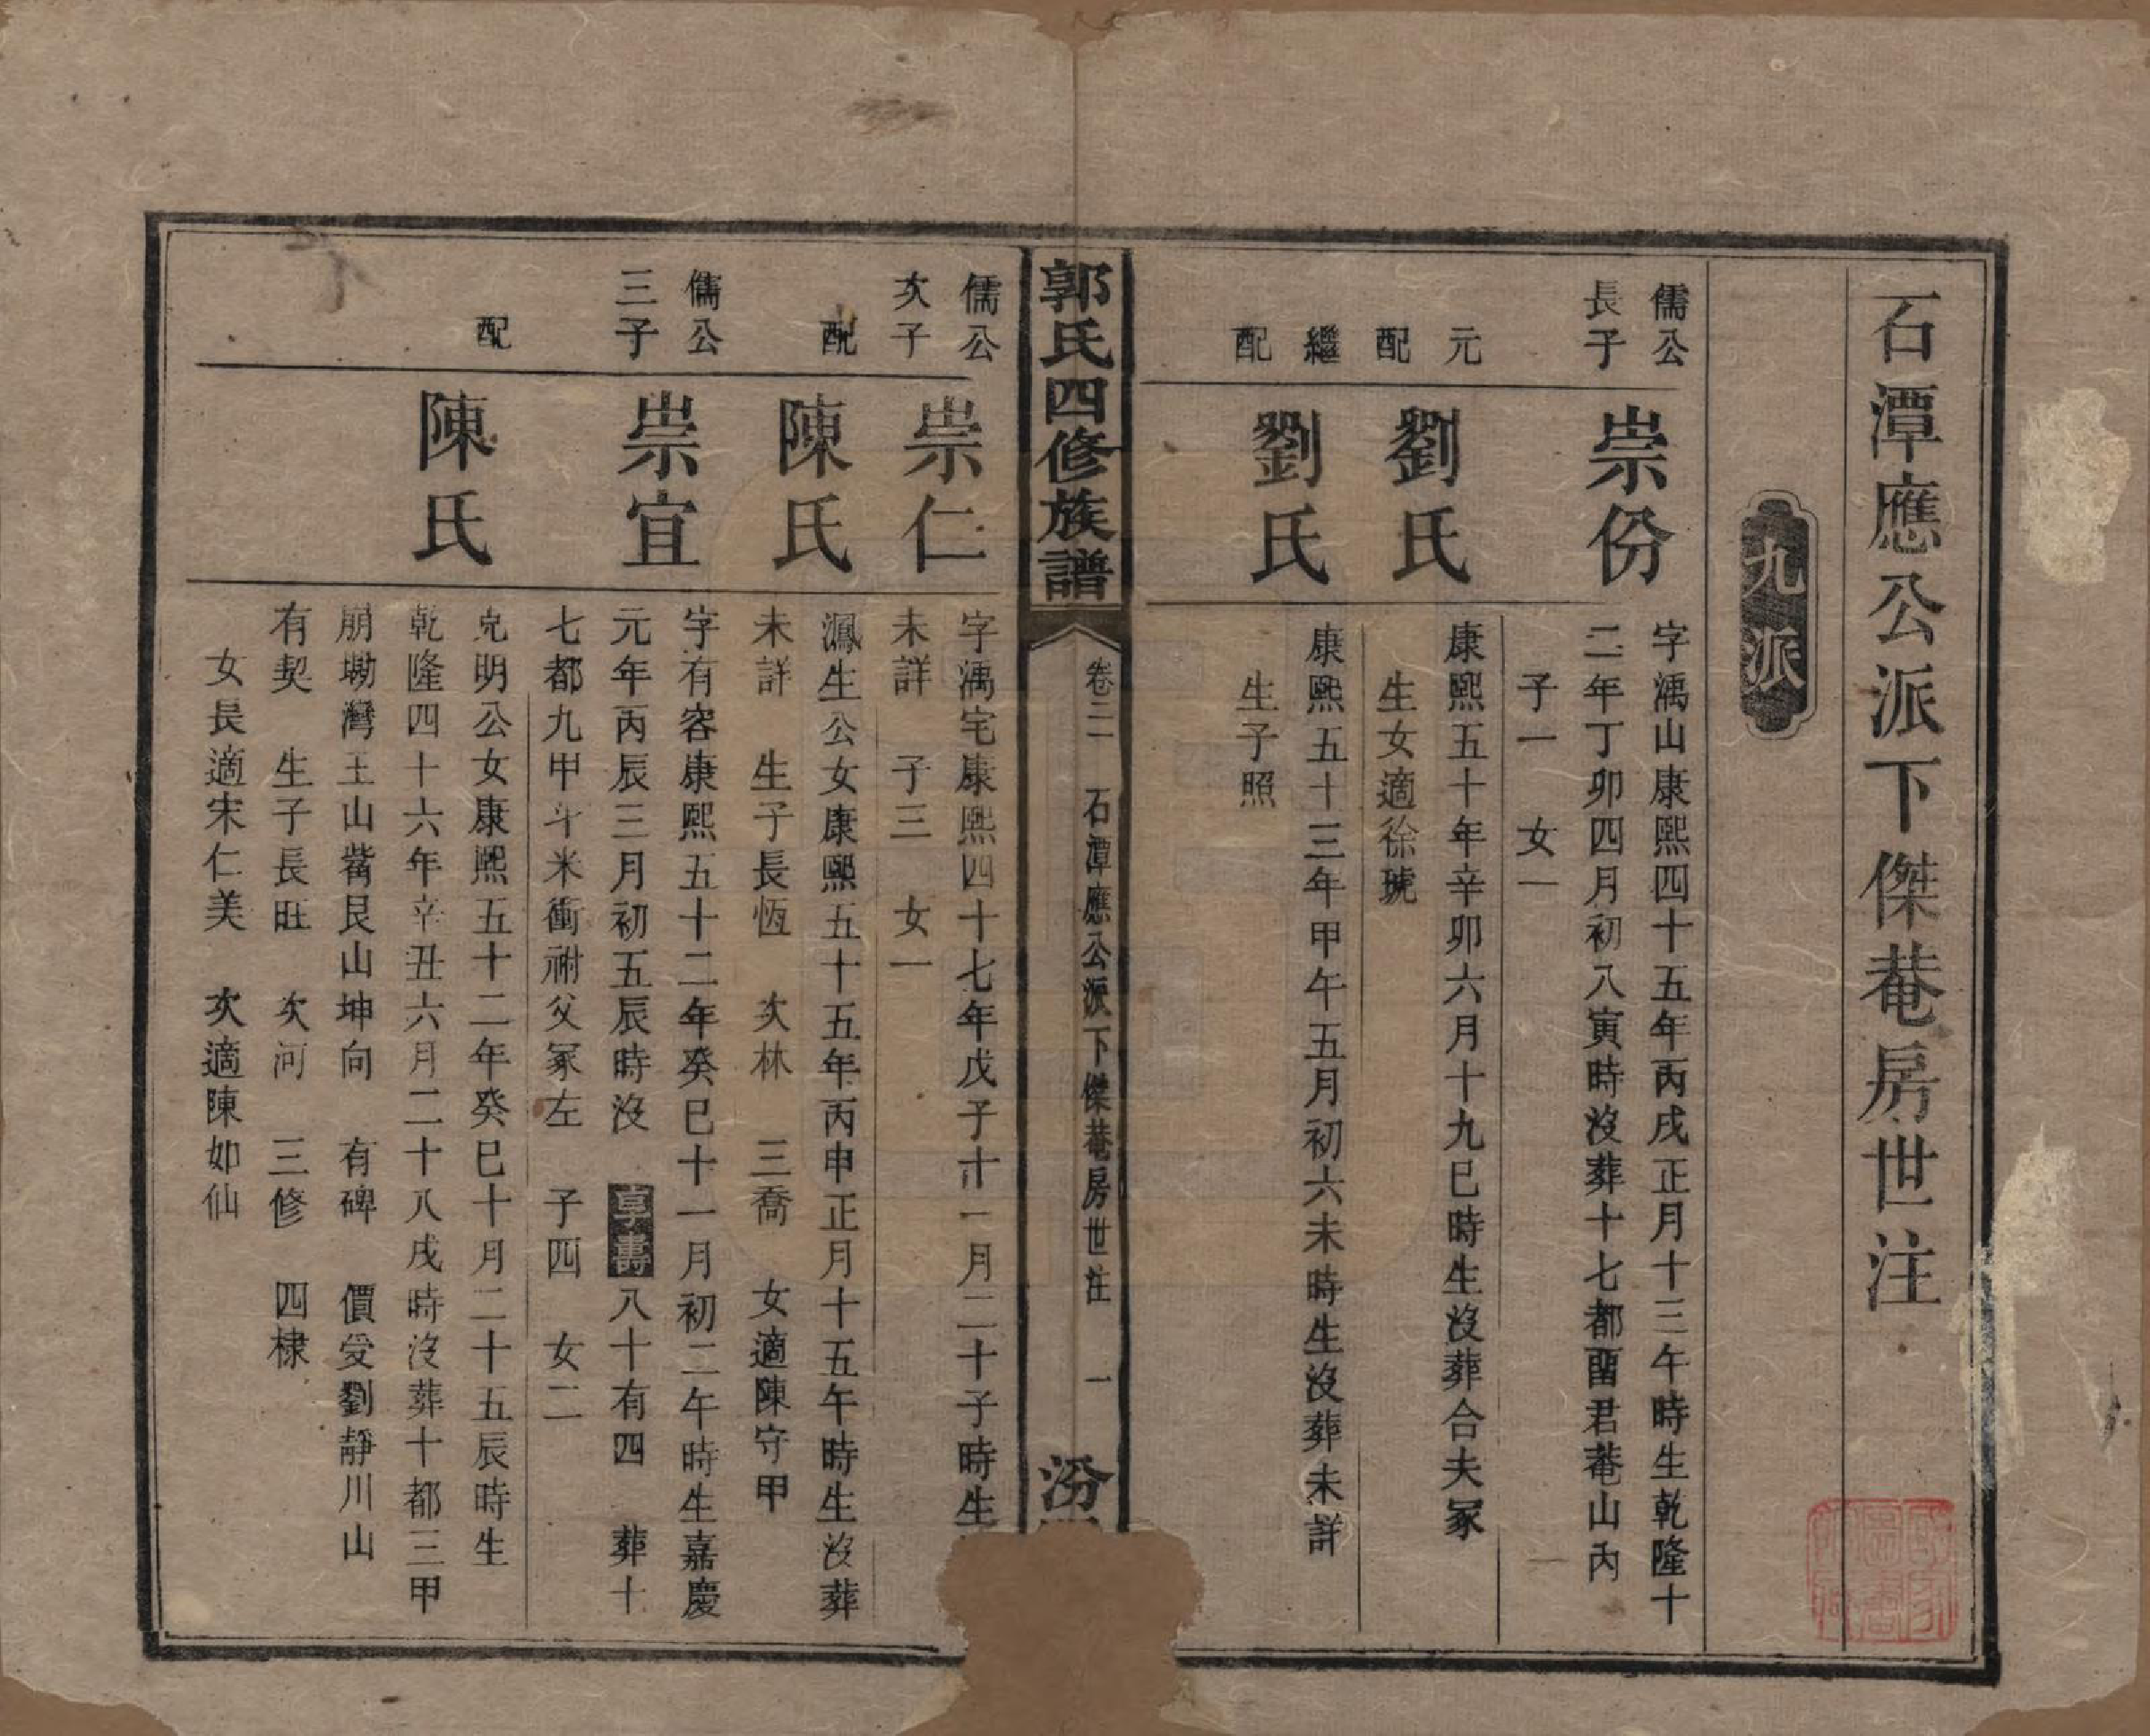 石潭應公派下傑菴房世注
九派
儒公
長子
崇份
字澫山康熙四十五年丙戌正月十三午時生乾隆十
二年丁卯四月初八寅時沒葬十七都畱君菴山內
子一 女一
元
配
劉氏
康熙五十年辛卯六月十九巳時生沒葬合夫冢
生女適徐琥
繼
配
劉氏
康熙五十三年甲午五月初六未時生沒葬未詳
生子照
郭氏四修族譜
卷二 石潭應公派下傑菴房世注 一
汾
儒公
次子
崇仁
字澫宅康熙四十七年戊子十一月二十子時生
未詳 子三 女一
配
陳氏
鳳生公女康熙五十五年丙申正月十五午時生沒葬
未詳 生子長恆 次林 三喬 女適陳守甲
儒公
三子
崇宜
字有容康熙五十二年癸巳十一月初二午時生嘉慶
元年丙辰三月初五辰時沒 享壽八十有四 葬十
七都九甲斗米衝祔父冢左 子四 女二
配
陳氏
克明公女康熙五十二年癸巳十月二十五辰時生
乾隆四十六年辛丑六月二十八戌時沒葬十都三甲
崩塝灣王山嘴艮山坤向 有碑 價受劉靜川山
有契 生子長旺 次河 三修 四棣
女長適宋仁美 次適陳如仙